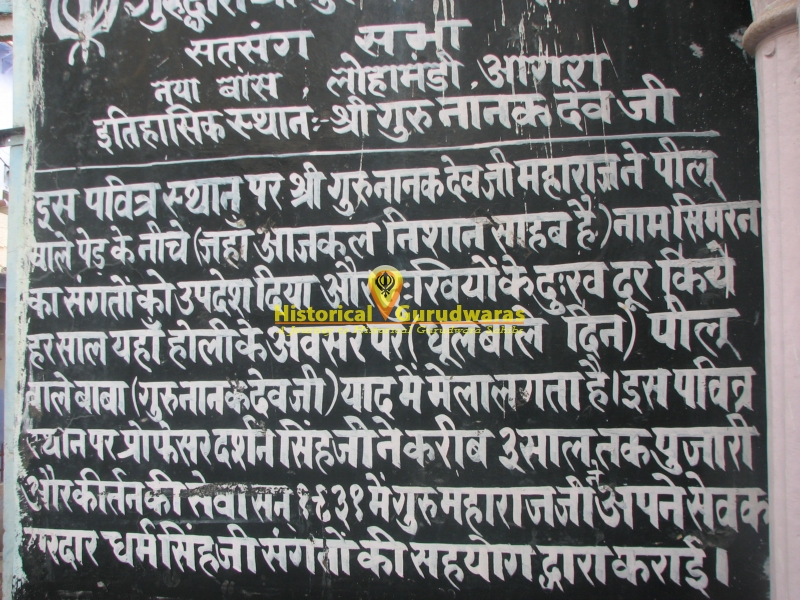 गुरुद्वारा श्री गुरु
सतसंग सभा
नया बांस, लोहामंडी, आगरा
इतिहासिक स्थान:- श्री गुरु नानक देव जी
इस पवित्र स्थान पर श्री गुरु नानक देव जी महाराज ने पीलू
वाले पेड़ के नीचे (जहाँ आजकल निशान साहब है) नाम सिमरन
का संगतों को उपदेश दिया और दुःखियों के दुःख दूर किये
Historical Gurudwaras
हर साल यहाँ होली के अवसर पर (धूल वाले दिन) पीलू
वाले बाबा (गुरु नानक देव जी) याद में मेला लगता है। इस पवित्र
स्थान पर प्रोफेसर दर्शन सिंह जी ने करीब ३ साल तक पुजारी
और कीर्तन की सेवा सन् १९३१ में गुरु महाराज जी ने अपने सेवक
सरदार धर्म सिंह जी संगतों की सहयोग द्वारा कराई।